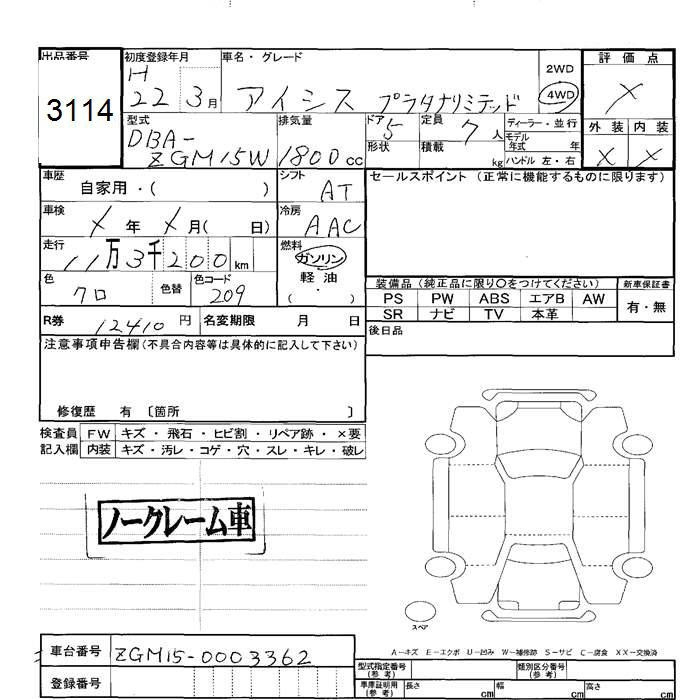 出品番号
3114
初度登録年月
H
22 3月
車名・グレード
アイシス プラタナリミテッド
2WD
4WD
評価点
X
外装 内装
X X
型式
DBA-
ZGM15W
排気量
1800cc
ドア 5
形状
定員 7人
積載 kg
ディーラー・並行
モデル
年式 年
ハンドル 左・右
車歴
自家用・( )
シフト
AT
セールスポイント (正常に機能するものに限ります)
車検
X年 X月( 日)
冷房
AAC
走行
11万3千200km
燃料
ガソリン
軽油
( ・ )
色
クロ
色替
色コード
209
装備品(純正品に限り○をつけてください)
新車保証書
PS PW ABS エアB AW
SR ナビ TV 本革
有・無
R券 12410円
名変期限 月 日
後日品
注意事項申告欄(不具合内容等は具体的に記入して下さい)
修復歴 有 〔箇所 〕
検査員 FW キズ・飛石・ヒビ割・リペア跡・×要
記入欄 内装 キズ・汚レ・コゲ・穴・スレ・キレ・破レ
ノークレーム車
スペア
A−キズ E−エクボ U−凹み W−補修跡 S−サビ C−腐食 XX−交換済
車台番号 ZGM15-0003362
登録番号
型式指定番号
(参考)
類別区分番号
(参考)
車庫証明用
(参考)
長さ cm 幅 cm 高さ cm